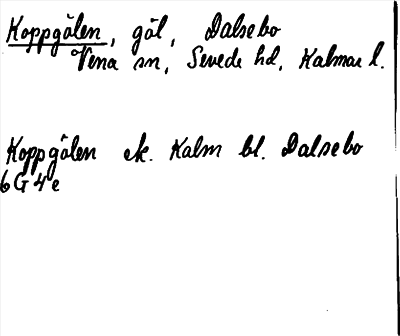 Koppgölen, göl, Dalsebo
Vena sn, Sevede hd, Kalmar l.
Koppgölen ek. Kalm bl. Dalsebo
6G4e